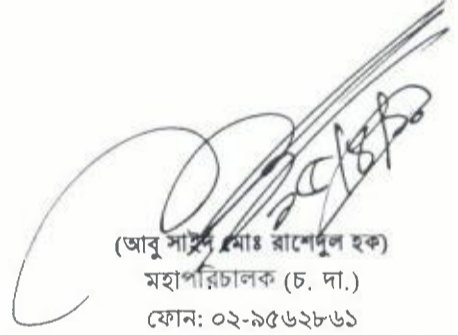 (আবু সাইদ মোঃ রাশেদুল হক)
মহাপরিচালক (চ. দা.)
ফোন: ০২-৯৫৬২৮৬১